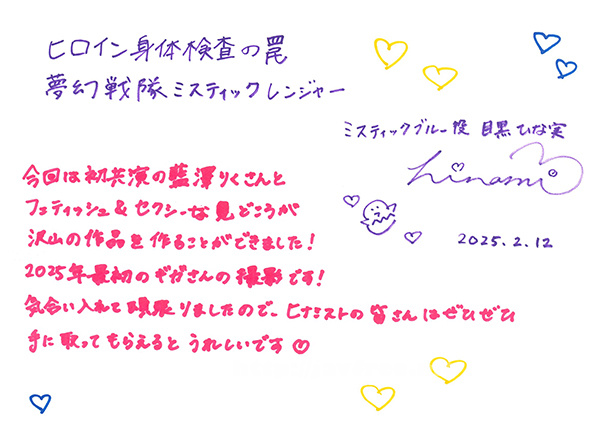 ヒロイン身体検査の罠
夢幻戦隊ミスティックレンジャー
ミスティックブルー役 目黒ひな実
hinami
2025.2.12
今回は初共演の藍澤りくさんと
フェティッシュ&セクシーな見どころが
沢山の作品を作ることができました!
2025年最初のギガさんの撮影です!
気合い入れて頑張りましたので、ヒナミストの皆さんはぜひぜひ
手に取ってもらえるとうれしいです